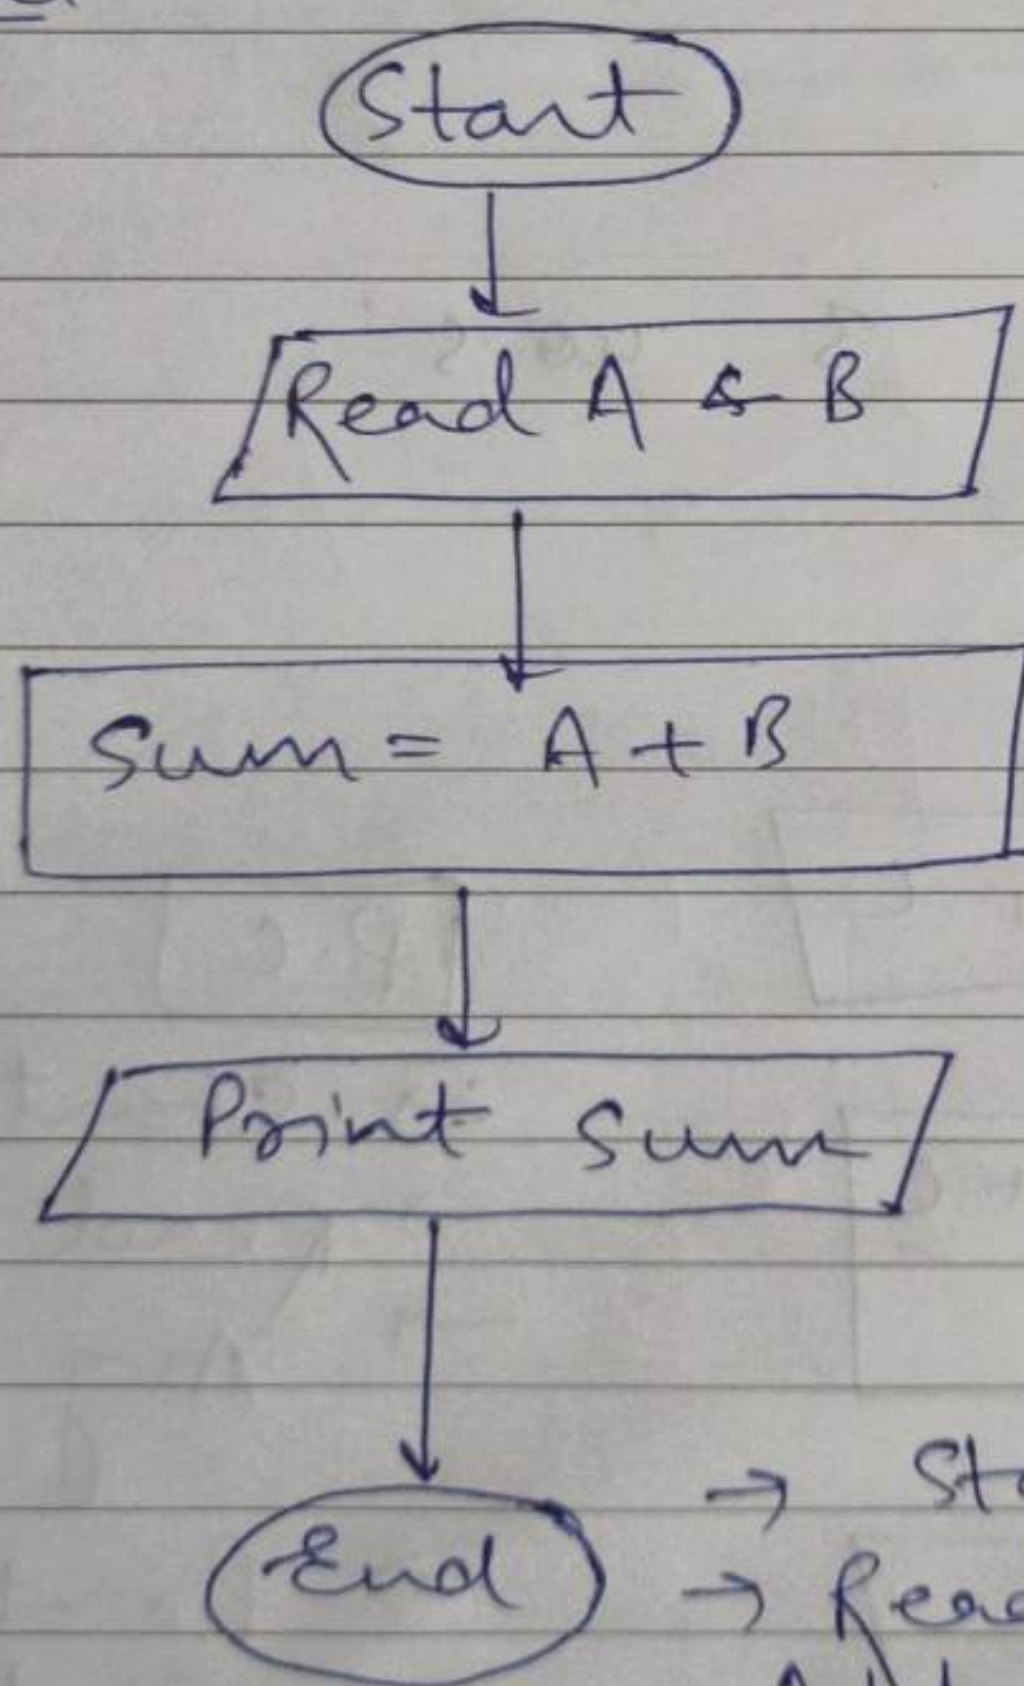 Start
Read A & B
Sum = A + B
Print Sum
End
→
→